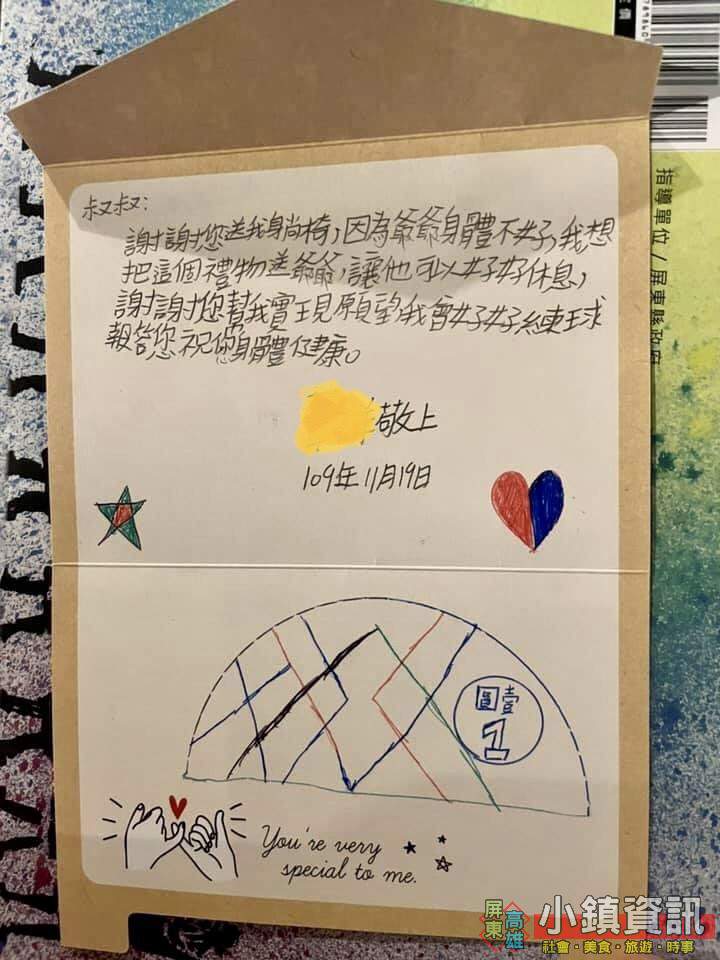 叔叔:
謝謝您送我身尚椅,因為爺爺身體不好,我想
把這個禮物送爺爺,讓他可以好好休息,
謝謝您幫我實現願望,我會好好練球
報答您,祝您身體健康。
敬上
109年11月19日
壹圓
1
You're very
special to me.
指導單位 / 屏東縣政府
屏東
高雄
小鎮資訊
社會・美食・旅遊・時事